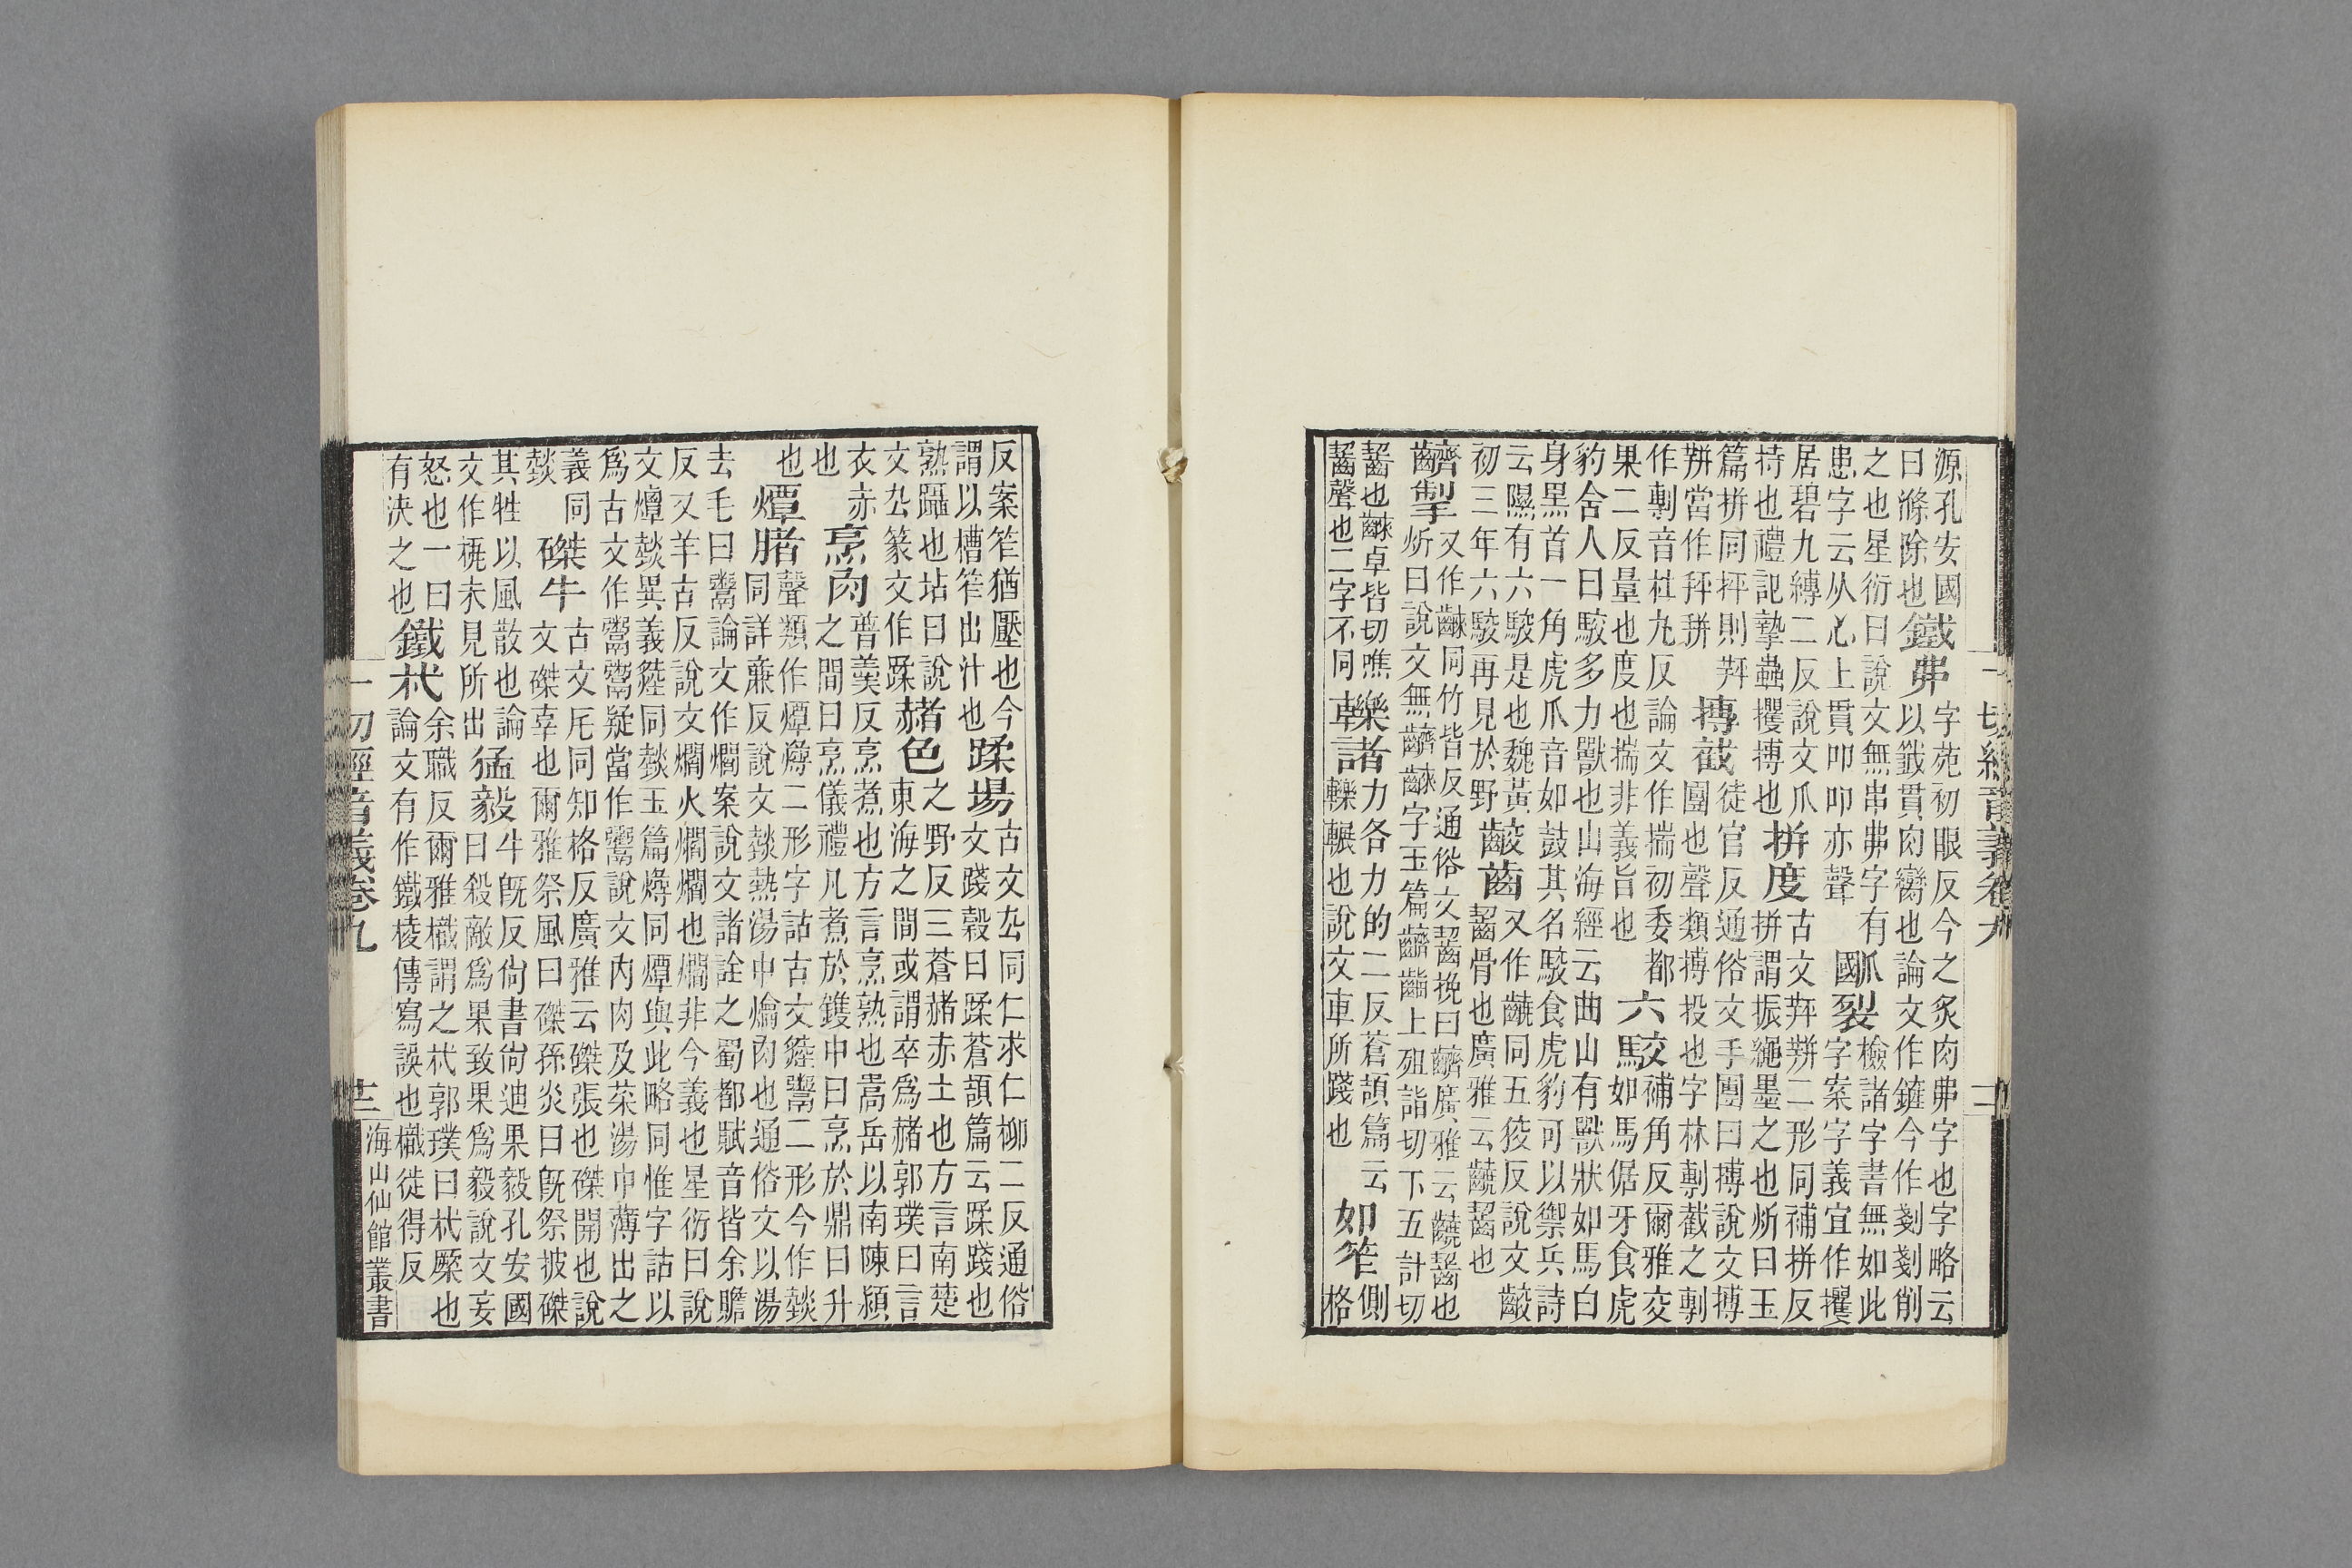 一切經音義卷九
源孔安國
曰滌除也
鐵弗
字苑初眼反今之炙肉弗字也字略云
以籤貫肉臠也論文作鏟今作剗剗削
之也星衍曰說文無串弗字有
患字云从心上貫吅吅亦聲
爴裂
檢諸字書無如此
字案字義宜作攫
居碧九縛二反說文爪
持也禮記摯蟲攫搏也
拼度
古文二形同補拼反
拼謂振繩墨之也炘曰玉
篇拼同抨則
當作抨拼
摶截
徒官反通俗文手團曰摶說文摶
團也聲類摶投也字林剸截之剸
作剸音杜九反論文作揣初委都
果二反量也度也揣非義旨也
六駮
補角反爾雅交
如馬倨牙食虎
豹舍人曰駮多力獸也山海經云曲山有獸狀如馬白
身黑首一角虎爪音如鼓其名駮食虎豹可以禦兵詩
云隰有六駮是也魏黃
初三年六駮再見於野
齩齒
又作同五狡反說文齩
齧骨也廣雅云齧也
掣
又作同竹皆反通俗文齧挽曰廣雅云齧也
炘曰說文無字玉篇上殂詣切下五計切
齧也卓皆切噍
齧聲也二字不同
轢諸
力各力的二反蒼頡篇云
轢輾也說文車所踐也
如笮
側
格
反案笮猶壓也今
謂以槽笮出汁也
蹂場
古文厹同仁求仁柳二反通俗
文踐穀曰蹂蒼頡篇云蹂踐也
熟躡也坫曰說
文厹篆文作蹂
赭色
之野反三蒼赭赤土也方言南楚
東海之間或謂卒爲赭郭璞曰言
衣赤
也
烹肉
普羹反烹煮也方言烹熟也嵩岳以南陳潁
之間曰烹儀禮凡煮於鑊中曰烹於鼎曰升
也
燂
聲類作燂燖二形字詁古文二形今作燅
同詳廉反說文燅熱湯中爚肉也通俗文以湯
去毛曰論文作爓案說文諸詮之蜀都賦音皆余贍
反又羊古反說文爓火爓爓也爓非今義也星衍曰說
文燂燅異義同燅玉篇燖同燂與此略同惟字詁以
爲古文作疑當作說文內肉及菜湯中薄出之
義同
燅
磔牛
古文厇同知格反廣雅云磔張也磔開也說
文磔辜也爾雅祭風曰磔孫炎曰旣祭披磔
其牲以風散也論
文作未見所出
猛毅
牛旣反尙書尙迪果毅孔安國
曰殺敵爲果致果爲毅說文妄
怒也一曰
有決之也
鐵杙
余職反爾雅樴謂之杙郭璞曰杙橜也
論文有作鐵棱傳寫誤也樴徒得反
一切經音義卷九
十二
海山仙館叢書